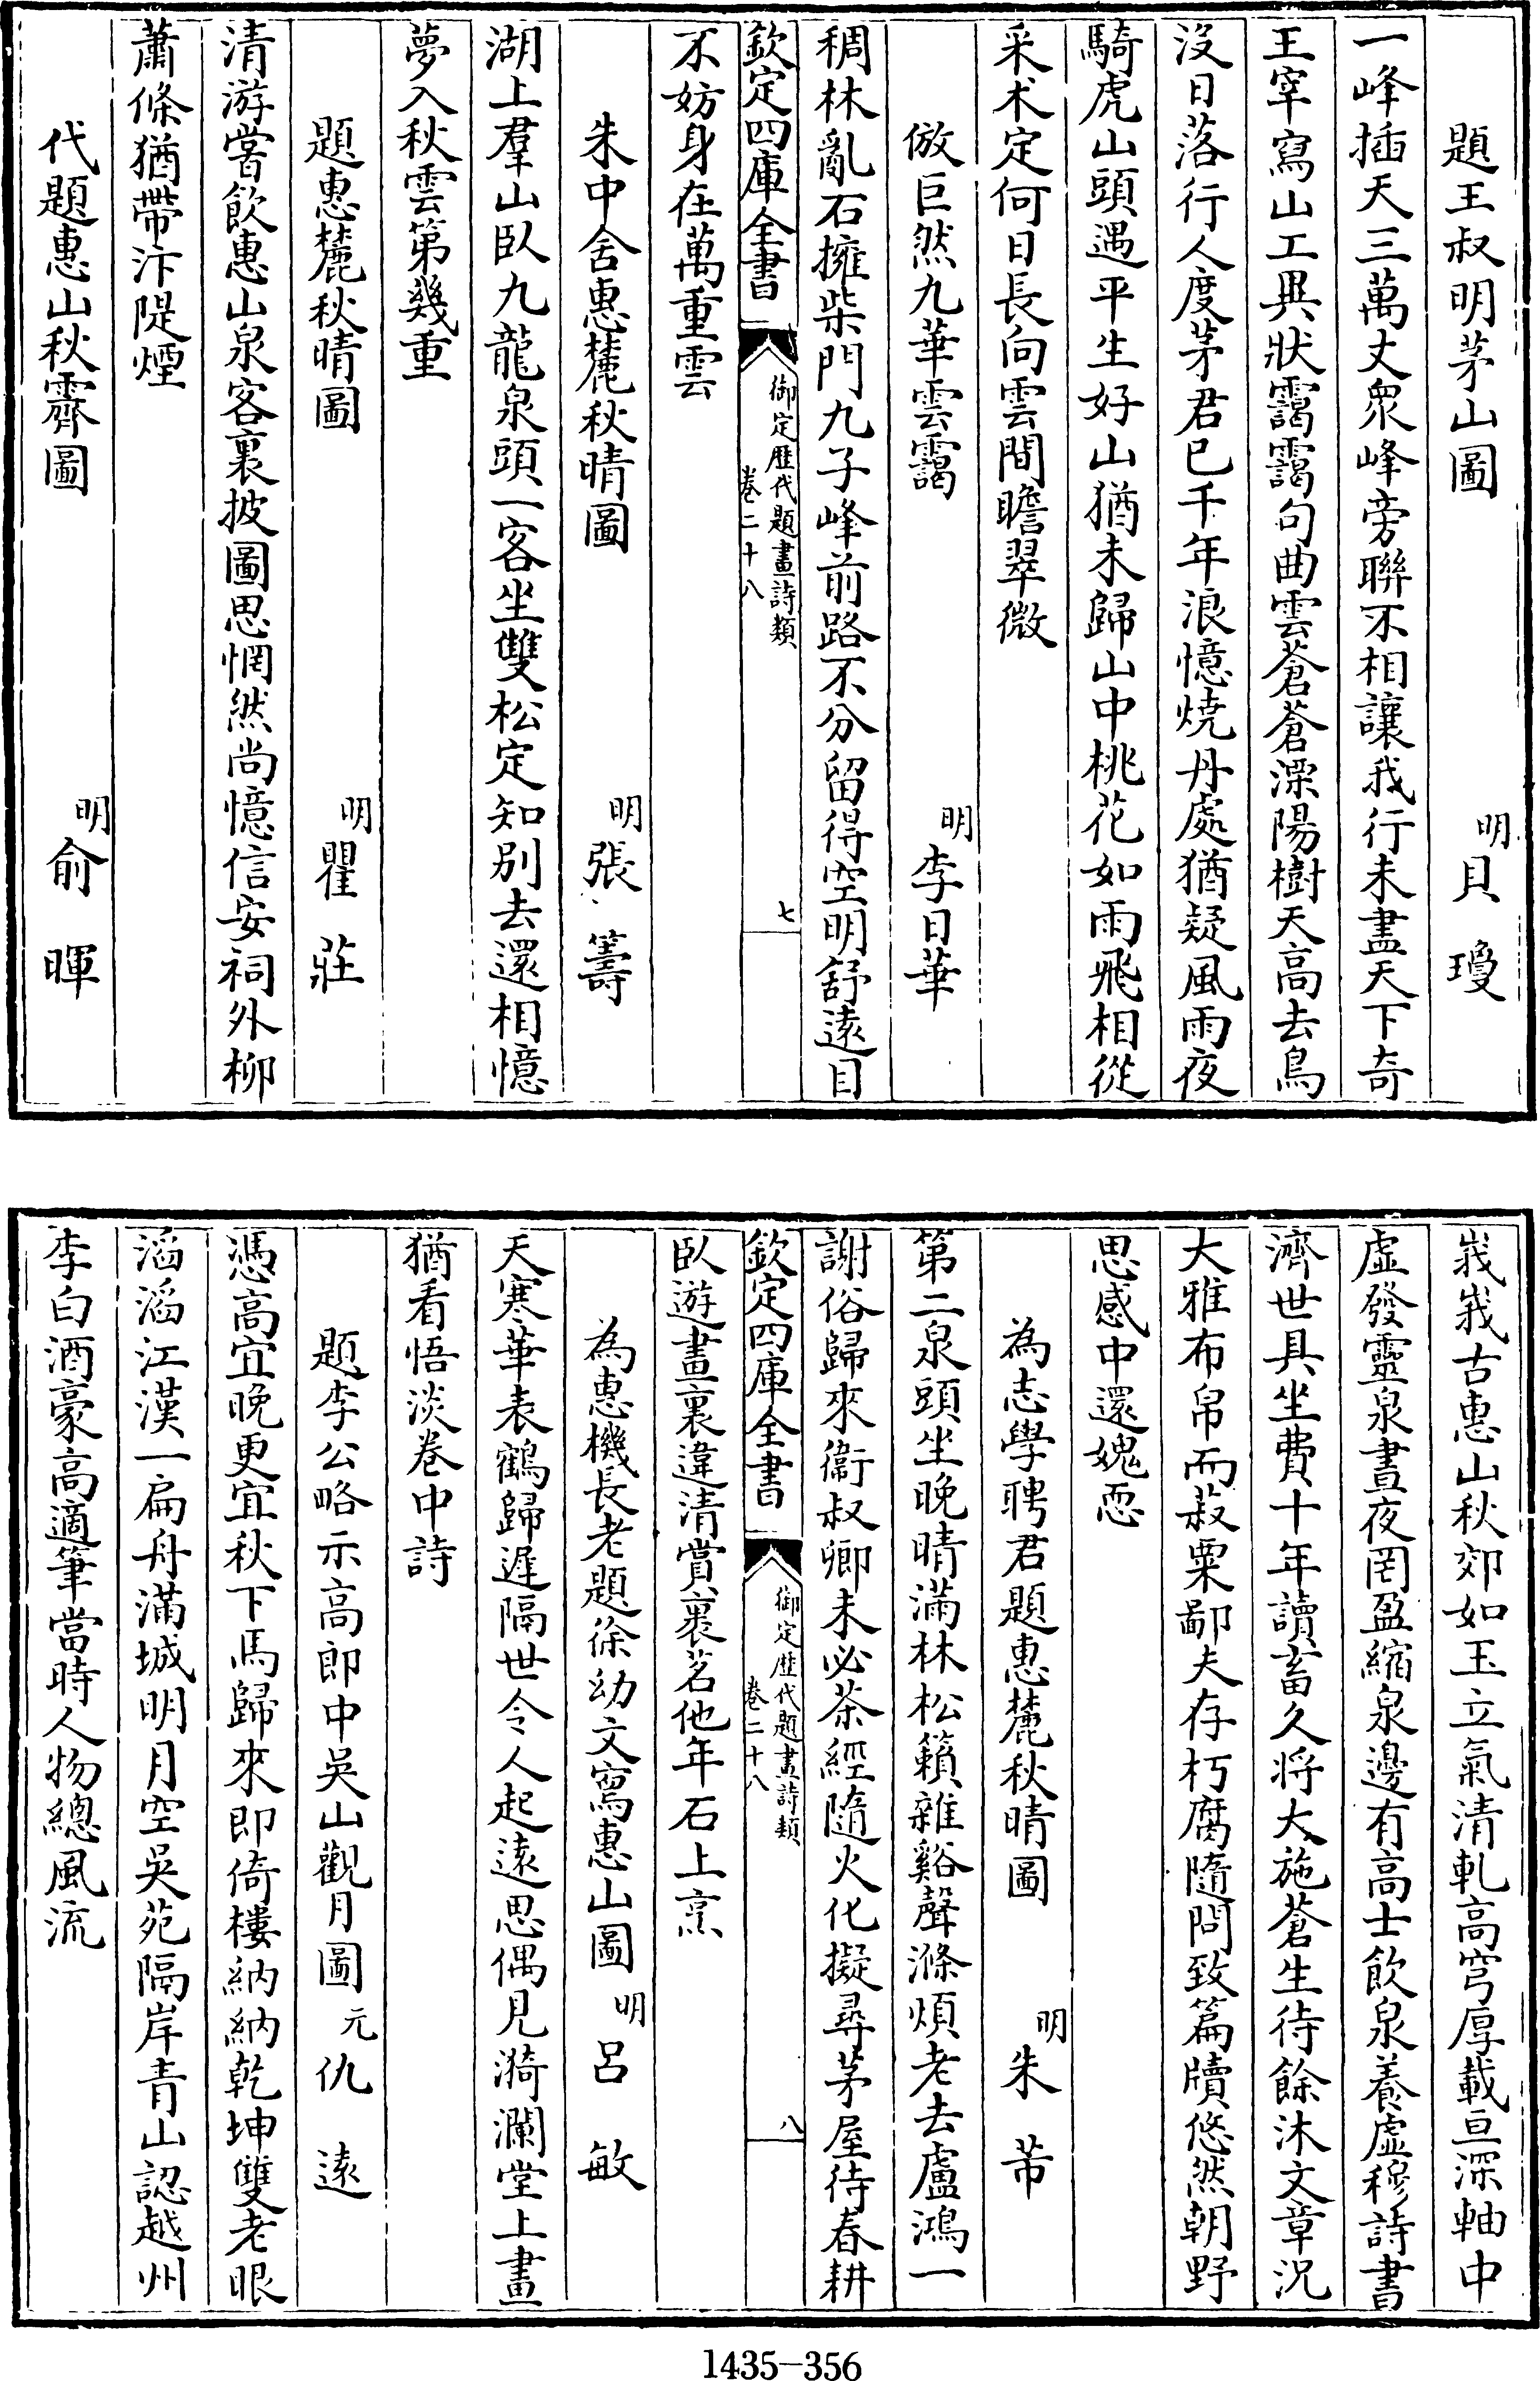 題王叔明茅山圖　明貝瓊
一峰插天三萬丈衆峰旁聯不相讓我行未盡天下奇
王宰寫山工異狀靄靄句曲雲蒼蒼溧陽樹天高去鳥
沒日落行人度茅君已千年浪憶燒丹處猶疑風雨夜
騎虎山頭遇平生好山猶未歸山中桃花如雨飛相從
采术定何日長向雲間瞻翠微
倣巨然九華雲靄　明李日華
稠林亂石擁柴門九子峰前路不分留得空明舒遠目
欽定四庫全書　御定歷代題畫詩類　卷二十八　七
不妨身在萬重雲
朱中舍惠麓秋晴圖　明張籌
湖上羣山臥九龍泉頭一客坐雙松定知别去還相憶
夢入秋雲第幾重
題惠麓秋晴圖　明瞿莊
清游嘗飲惠山泉客裏披圖思惘然尚憶信安祠外柳
蕭條猶帶汴隄煙
代題惠山秋霽圖　明俞暉
峩峩古惠山秋郊如玉立氣清軋高穹厚載亘深軸中
虛發靈泉晝夜罔盈縮泉邊有高士飲泉養虛穆詩書
濟世具坐費十年讀畜久將大施蒼生待餘沐文章況
大雅布帛而菽粟鄙夫存朽腐隨問致篇牘悠然朝野
思感中還媿恧
為志學聘君題惠麓秋晴圖　明朱芾
第二泉頭坐晚晴滿林松籟雜谿聲滌煩老去盧鴻一
謝俗歸來衞叔卿未必茶經隨火化擬尋茅屋待春耕
欽定四庫全書　御定歷代題畫詩類　卷二十八　八
臥遊畫裏違清賞裹茗他年石上烹
為惠機長老題徐幼文寫惠山圖　明呂敏
天寒華表鶴歸遲隔世令人起遠思偶見漪瀾堂上畫
猶看悟淡卷中詩
題李公略示高郎中吳山觀月圖　元仇遠
憑高宜晚更宜秋下馬歸來即倚樓納納乾坤雙老眼
滔滔江漢一扁舟滿城明月空吳苑隔岸青山認越州
李白酒豪高適筆當時人物總風流
1435-356